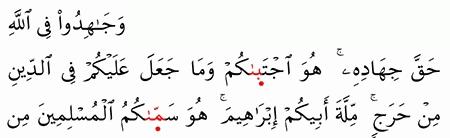 وَجَٰهِدُوا۟ فِى ٱللَّهِ
حَقَّ جِهَادِهِۦ ۚ هُوَ ٱجْتَبَىٰكُمْ وَمَا جَعَلَ عَلَيْكُمْ فِى ٱلدِّينِ
مِنْ حَرَجٍ ۚ مِّلَّةَ أَبِيكُمْ إِبْرَٰهِيمَ ۚ هُوَ سَمَّىٰكُمُ ٱلْمُسْلِمِينَ مِن